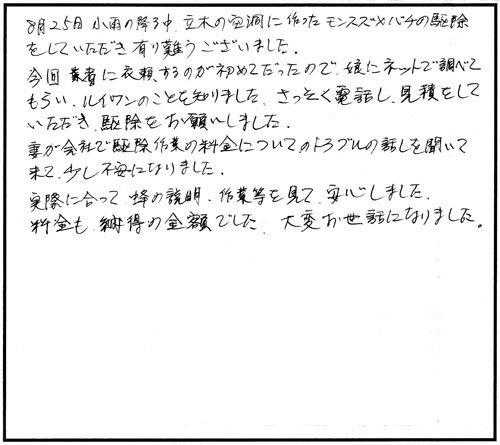 8月25日 小雨の降る中、立木の空洞に作ったモンスズメバチの駆除
をしていただき有り難うございました。
今回 業者に依頼するのが初めてだったので、娘にネットで調べて
もらい、ルイワンのことを知りました、さっそく電話し、見積をして
いただき、駆除をお願いしました。
妻が会社で駆除作業の料金についてのトラブルの話しを聞いて
来て、少し不安になりました。
実際に合って、蜂の説明、作業等を見て、安心しました、
料金も、納得の金額でした、大変お世話になりました。